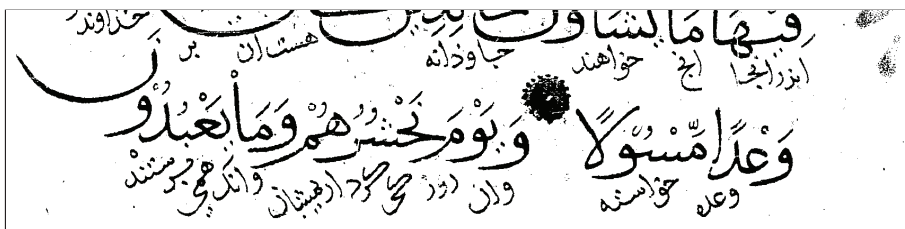 فِيهَا مَا يَشَاؤُنَ خَالِدِينَ
اندر انجا انچ خواهند جاودانه هست ان بر خداوند
وَعْدًا مَّسْئُولًا وَيَوْمَ نَحْشُرُهُمْ وَمَا يَعْبُدُونَ
وعده خواسته وان روز کی گرد اریمشان وانک همی پرستند